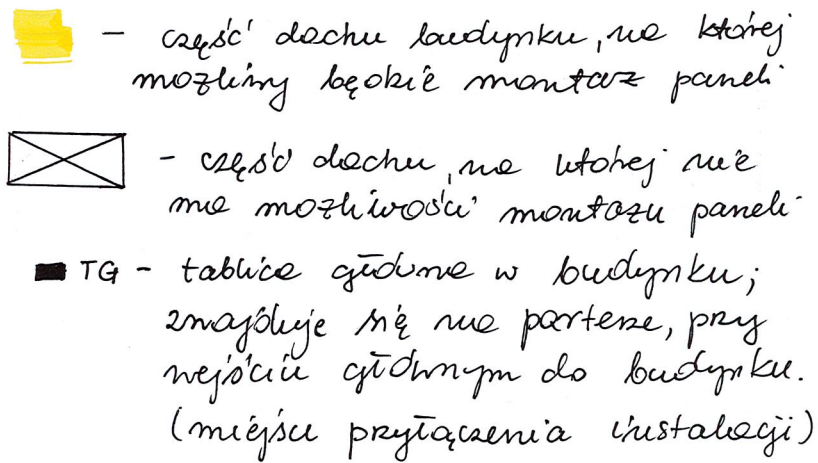 – część dachu budynku, na której
możliwy będzie montaż paneli
– część dachu, na której nie
ma możliwości montażu paneli
TG – tablica główna w budynku;
znajduje się na parterze, przy
wejściu głównym do budynku.
(miejsce przyłączenia instalacji)